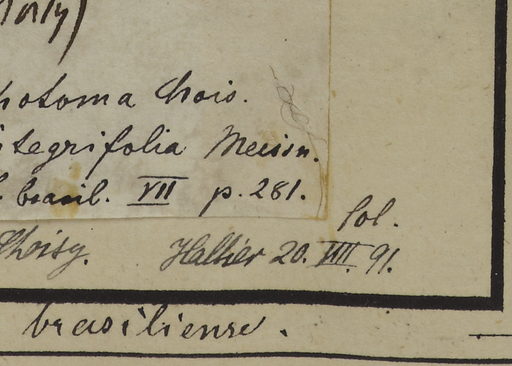 hotoma Chois.
tegrifolia Meissn.
brasil. VII p. 281.
Sol.
Choisy. Hallier 20. VIII. 91.
brasiliense.